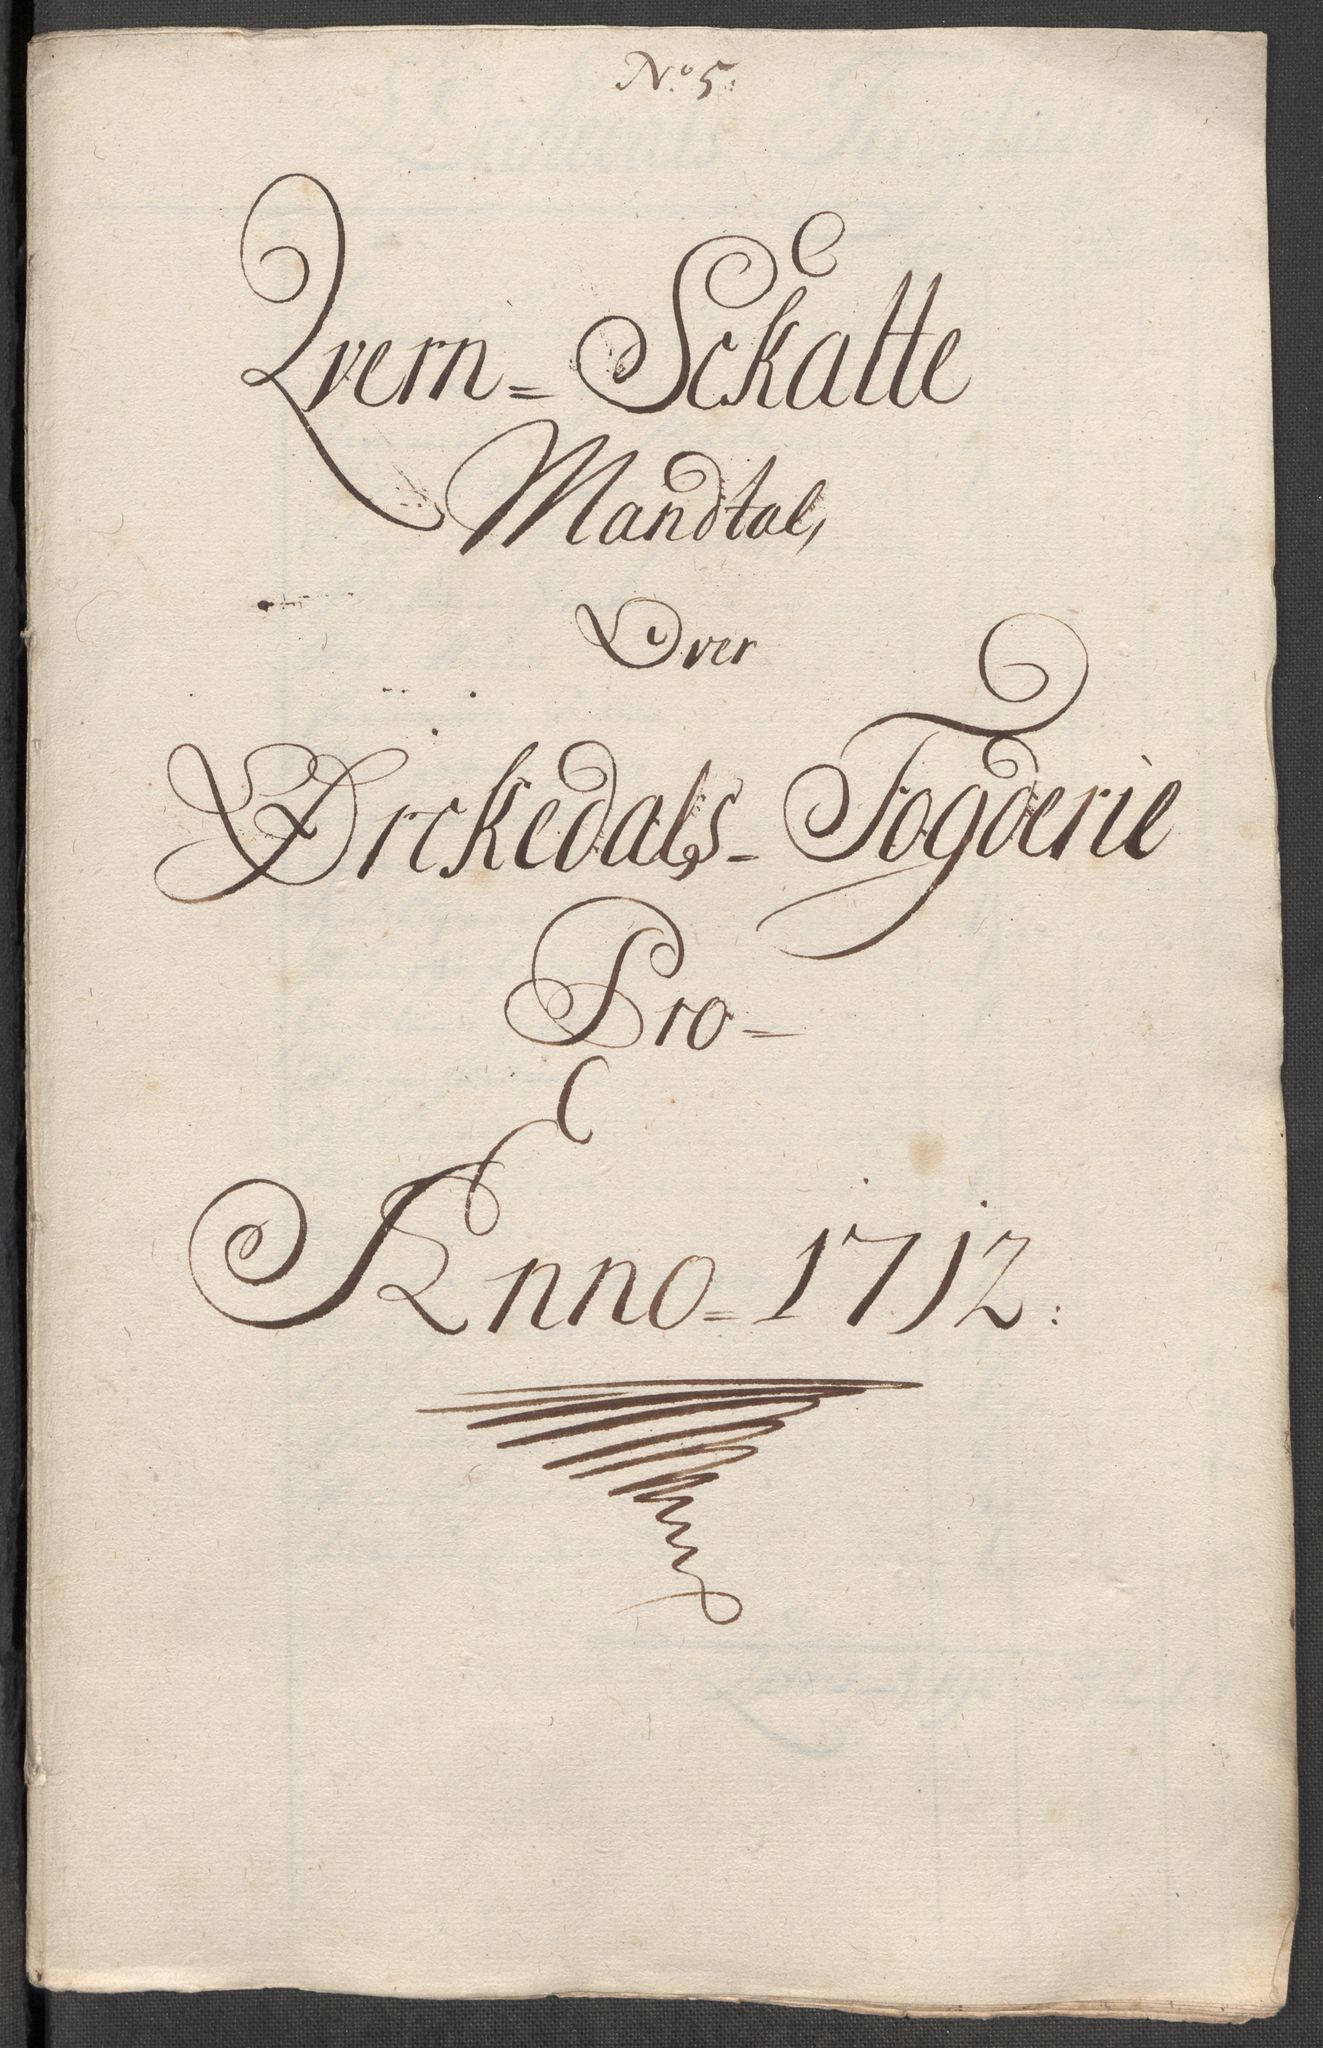 No 5:
Qvern=Sckatte
Mandtal,
Over
Ørckedals=Fogderie
Pro=
Anno=1712: